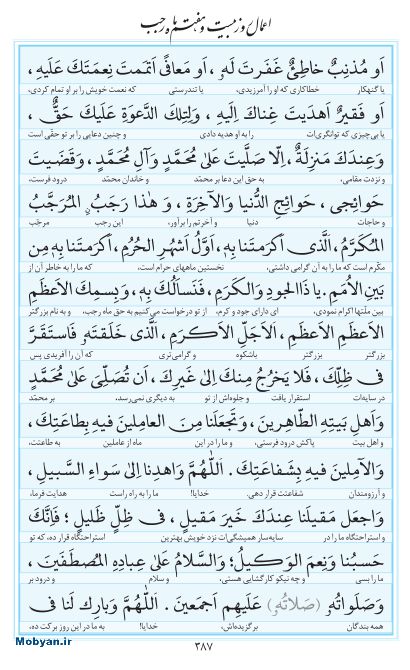 اعمال روز بیست و هفتم ماه رجب
اَو مُذنِبٌ خاطِئٌ غَفَرتَ لَهُ ، اَو مُعافًی اَتمَمتَ نِعمَتَكَ عَلَیهِ ،
یا گنهکار خطاکاری که او را آمرزیدی، یا تندرستی که نعمت خویش را بر او تمام کردی،
اَو فَقیرٌ اَهدَیتَ غِناكَ اِلَیهِ ، وَلِتِلكَ الدَّعوَةِ عَلَیكَ حَقٌّ ،
یا بی‌چیزی که توانگری‌ات را به او هدیه دادی و چنین دعایی را بر تو حقی است
وَعِندَكَ مَنزِلَةٌ ، اِلّا صَلَّیتَ عَلیٰ مُحَمَّدٍ وَآلِ مُحَمَّدٍ ، وَقَضَیتَ
و نزدت مقامی، به حق این دعا بر محمّد و خاندان محمّد درود فرست،
حَوائِجی ، حَوائِجَ الدُّنیا وَالآخِرَةِ ، وَ هٰذا رَجَبٌ المُرَجَّبُ
و حاجات دنیا و آخرتم را برآور، این رجب مرجّب
المُكَرَّمُ ، الَّذی اَكرَمتَنا بِهِ ، اَوَّلُ اَشهُرِ الحُرُمِ ، اَكرَمتَنا بِهِ مِن
مکرّم است که ما را به آن گرامی داشتی، نخستین ماههای حرام است، که ما را به خاطر آن از
بَینِ الاُمَمِ . یا ذَا الجودِ وَالكَرَمِ ، فَنَسأَلُكَ بِهِ ، وَبِاسمِكَ الاَعظَمِ
بین ملّتها اکرام نمودی، ای دارای جود و کرم، از تو درخواست می‌کنیم به حق ماه رجب، و به نام بزرگتر
الاَعظَمِ الاَعظَمِ ، الاَجَلِّ الاَكرَمِ ، الَّذی خَلَقتَهُ ، فَاستَقَرَّ
بزرگتر بزرگتر باشکوه و گرامی‌تری که آن را آفریدی پس
فی ظِلِّكَ ، فَلا یَخرُجُ مِنكَ اِلیٰ غَیرِكَ ، اَن تُصَلِّیَ عَلیٰ مُحَمَّدٍ
در سایه‌ات استقرار یافت و جلوه‌اش از تو به دیگری نمی‌رسد، بر محمّد
وَاَهلِ بَیتِهِ الطّاهِرینَ ، وَتَجعَلَنا مِنَ العامِلینَ فیهِ بِطاعَتِكَ ،
و اهل بیت پاکش درود فرستی، و ما را در این ماه از عاملین به طاعتت،
وَالآمِلینَ فیهِ بِشَفاعَتِكَ . اَللّٰهُمَّ وَاهدِنا اِلیٰ سَواءِ السَّبیلِ ،
و آرزومندان شفاعتت قرار دهی. خدایا! ما را به راه راست هدایت فرما،
وَاجعَل مَقیلَنا عِندَكَ خَیرَ مَقیلٍ ، فی ظِلٍّ ظَلیلٍ ؛ فَاِنَّكَ
و استراحتگاه ما را در سایه‌سار همیشگی‌ات نزد خویش بهترین استراحتگاه قرار ده، که تو
حَسبُنا وَنِعمَ الوَكیلُ ؛ وَالسَّلامُ عَلیٰ عِبادِهِ المُصطَفَینَ ،
ما را بسی و چه نیکو کارگشایی هستی، و سلام و درود بر
وَصَلَواتُهُ (صَلاتُهُ) عَلَیهِم اَجمَعینَ . اَللّٰهُمَّ وَبارِك لَنا فی
همه بندگان برگزیده‌اش، خدایا! به ما در این روز برکت ده،
۳۸۷
Mobyan.ir